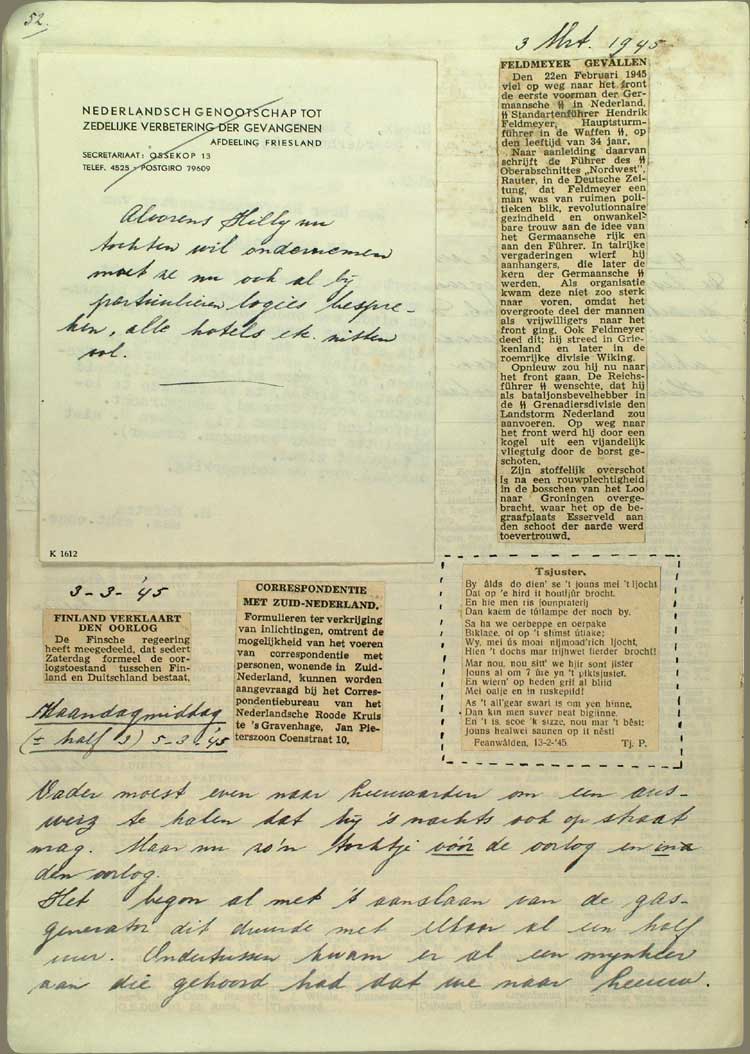 52.
3 Mrt. 1945
NEDERLANDSCH GENOOTSCHAP TOT
ZEDELIJKE VERBETERING DER GEVANGENEN
AFDEELING FRIESLAND
SECRETARIAAT: OSSEKOP 13
TELEF. 4525 - POSTGIRO 79609
Alvorens Hilly nu
tochten wil ondernemen
moet ze nu ook al bij
particulieren logies bespre-
ken, alle hotels etc. zitten
vol.
K 1612
FELDMEYER GEVALLEN
Den 22en Februari 1945
viel op weg naar het front
de eerste voorman der Ger-
maansche SS in Nederland,
SS Standartenführer Hendrik
Feldmeyer, Hauptsturm-
führer in de Waffen SS, op
den leeftijd van 34 jaar.
Naar aanleiding daarvan
schrijft de Führer des SS
Oberabschnittes „Nordwest",
Rauter, in de Deutsche Zei-
tung, dat Feldmeyer een
man was van ruimen poli-
tieken blik, revolutionnaire
gezindheid en onwankel-
bare trouw aan de idee van
het Germaansche rijk en
aan den Führer. In talrijke
vergaderingen wierf hij
aanhangers, die later de
kern der Germaansche SS
werden. Als organisatie
kwam deze niet zoo sterk
naar voren, omdat het
overgroote deel der mannen
als vrijwilligers naar het
front ging. Ook Feldmeyer
deed dit; hij streed in Grie-
kenland en later in de
roemrijke divisie Wiking.
Opnieuw zou hij nu naar
het front gaan. De Reichs-
führer SS wenschte, dat hij
als bataljonsbevelhebber in
de SS Grenadiersdivisie den
Landstorm Nederland zou
aanvoeren. Op weg naar
het front werd hij door een
kogel uit een vijandelijk
vliegtuig door de borst ge-
schoten.
Zijn stoffelijk overschot
is na een rouwplechtigheid
in de bosschen van het Loo
naar Groningen overge-
bracht, waar het op de be-
graafplaats Esserveld aan
den schoot der aarde werd
toevertrouwd.
3-3-'45
FINLAND VERKLAART
DEN OORLOG
De Finsche regeering
heeft meegedeeld, dat sedert
Zaterdag formeel de oor-
logstoestand tusschen Fin-
land en Duitschland bestaat.
CORRESPONDENTIE
MET ZUID-NEDERLAND.
Formulieren ter verkrijging
van inlichtingen, omtrent de
mogelijkheid van het voeren
van correspondentie met
personen, wonende in Zuid-
Nederland, kunnen worden
aangevraagd bij het Corres-
pondentiebureau van het
Nederlandsche Roode Kruis
te 's Gravenhage, Jan Pie-
terszoon Coenstraat 10.
Tsjuster.
By âlds do dien' se 't jouns mei 't ljocht
Dat op 'e hird it houtfjûr brocht.
En hie men ris jounpraterij
Dan kaem de tûllampe der noch by.
Sa ha we oerbeppe en oerpake
Biklage, ol op 't slimst útlake;
Wy, mei ús mooi nijmoad'rich ljocht,
Hien 't dochs mar frijhwet fierder brocht!
Mar nou, nou sitt' we hjir sont jister
Jouns al om 7 ûre yn 't pikstsjuster.
En wiern' op heden grif al bliid
Mei oalje en in ruskepiid!
As 't all'gear swart is om yen hinne,
Dan kin men suver neat biginne.
En 't is, scoe 'k sizze, nou mar 't bêst:
Jouns healwei saunen op it nêst!
Feanwâlden, 13-2-'45. Tj. P.
Maandagmiddag
(± half 3) 5-3-'45
Vader moest even naar Leeuwarden om een aus-
weis te halen dat hij 's nachts ook op straat
mag. Maar nu zo'n tochtje vóór de oorlog en in
den oorlog.
Het begon al met 't aanslaan van de gas-
generator dit duurde met elkaar al een half
uur. Ondertussen kwam er al een mynheer
aan die gehoord had dat we naar Leeuw.